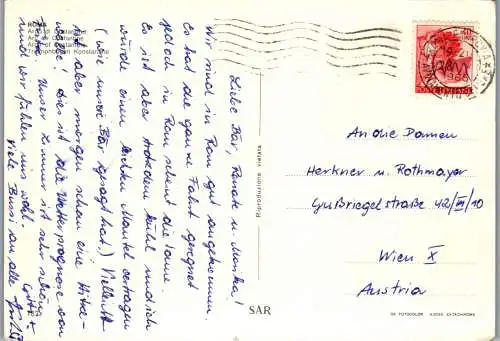 ROMA
Arco di Costantino
Arc de Constantin
Arch of Constantine
Triumphbogen Konstantins
Liebe Bär, Renate u. Monika!
Wir sind in Rom gut angekommen.
Es hat die ganze Fahrt geregnet
jedoch in Rom scheint die Sonne.
Es ist aber trotzdem kühl und ich
würde einen leichten Mantel vertragen
(wie unsere Bär gesagt hat.) Vielleicht
ist aber morgen schon eine Hitze-
welle! Dies ist die Wetterprognose von
Unser Zimmer ist sehr schön
und wir fühlen uns wohl.
Viele Bussi an alle
Riproduzione vietata
SAR
An die Damen
Herkner u. Rothmayer
Gußriegelstraße 42/III/10
Wien X
Austria